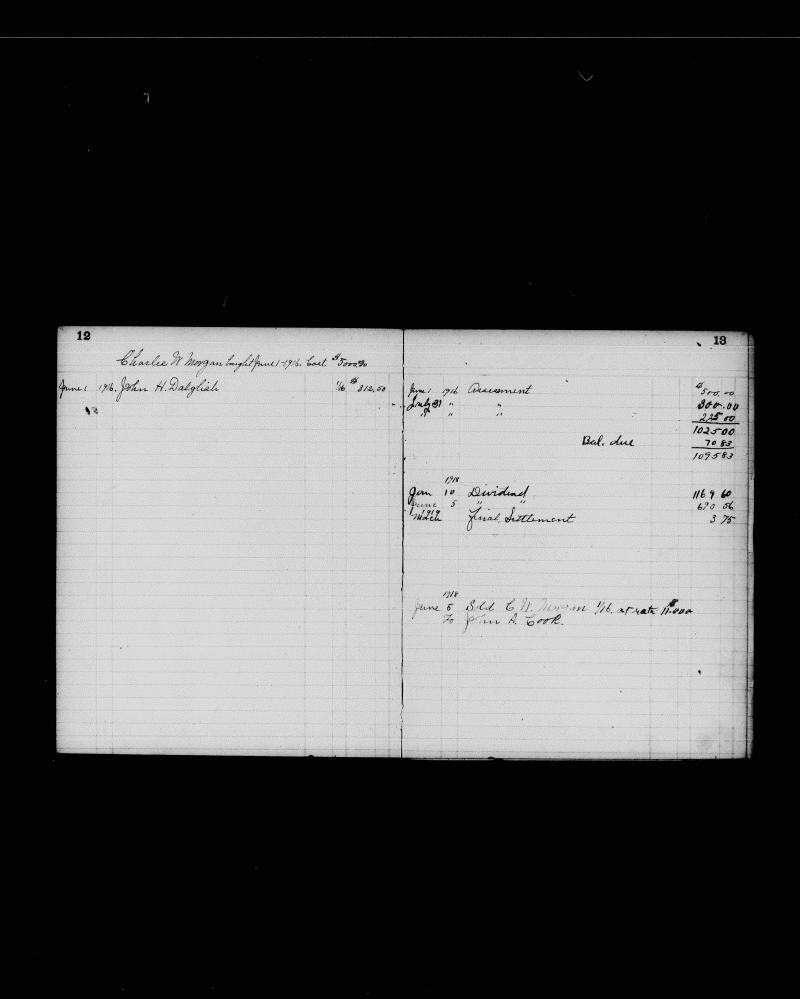 12
Charlie W Morgan bought June 1-1916. Cost $5000.00
June 1 1916. John H. Dalglish 1/16 $312.50
13
June 1 1916 Assessment $500.00
July 31 " " 300.00
" " " 225 00
1025 00
Bal. due 70 83
1095 83
1918
Jan 10 Dividend 1169 60
June 5 " " 690 56
1919
March Final Settlement 3 75
1918
June 5 Sold C. W. Morgan 1/16. at rate $11.000
To John A. Cook.